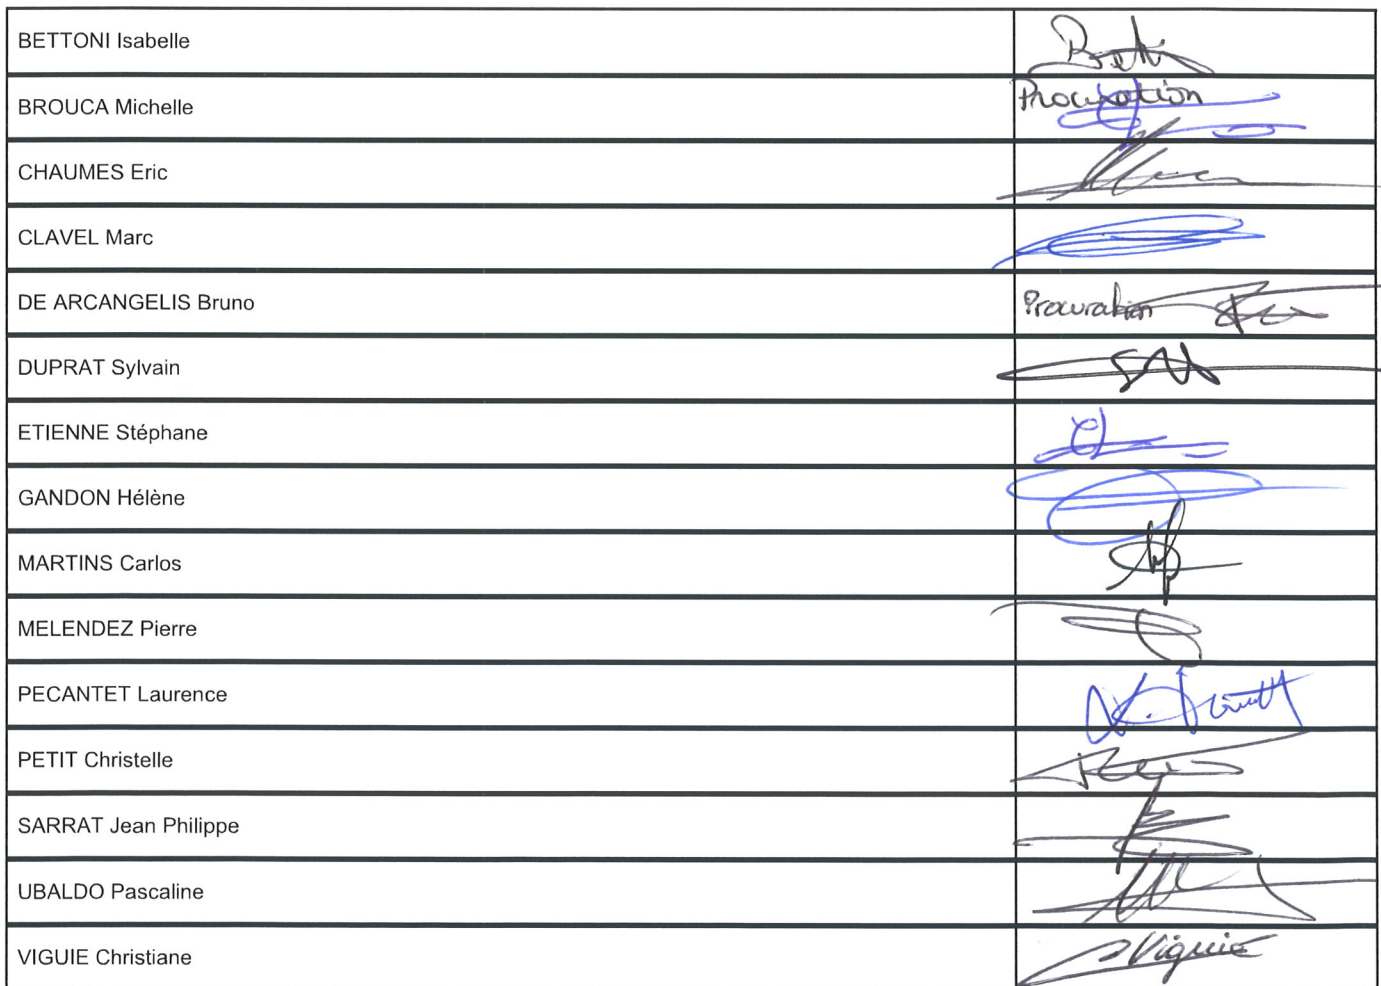 BETTONI Isabelle
BROUCA Michelle Procuration
CHAUMES Eric
CLAVEL Marc
DE ARCANGELIS Bruno Procuration
DUPRAT Sylvain
ETIENNE Stéphane
GANDON Hélène
MARTINS Carlos
MELENDEZ Pierre
PECANTET Laurence
PETIT Christelle
SARRAT Jean Philippe
UBALDO Pascaline
VIGUIE Christiane Viguié